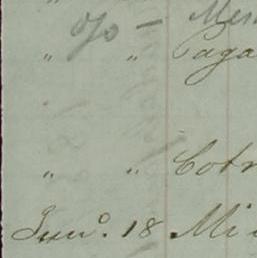 % — Mem
" " Paga
" " Cotr
Junº. 18 Mi